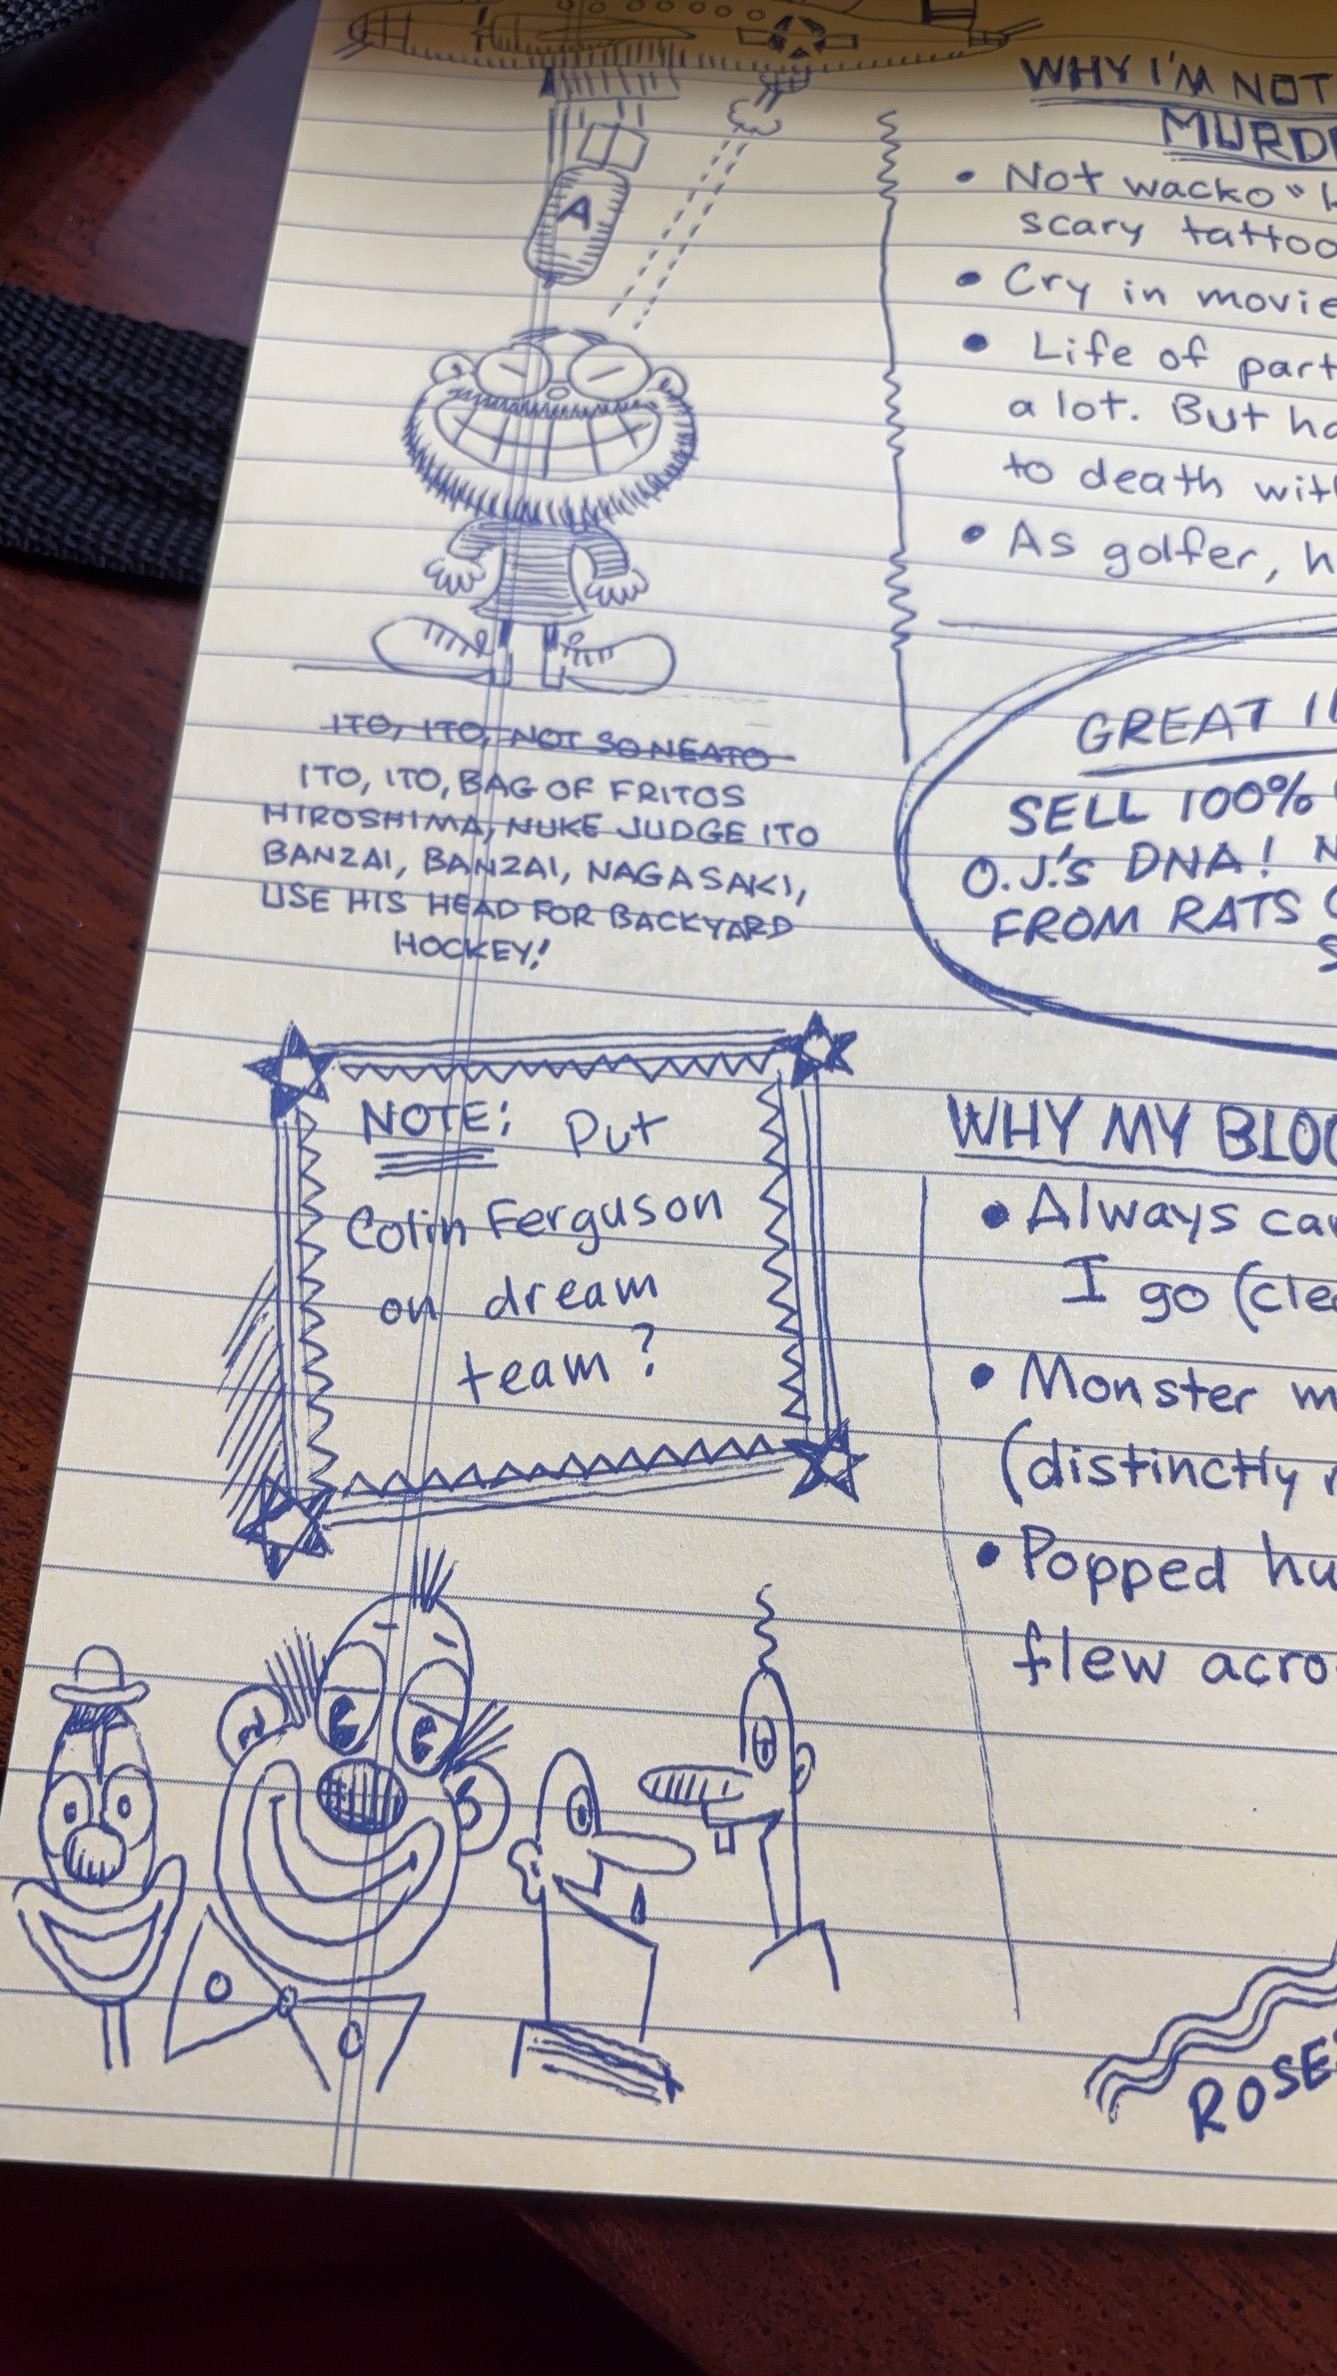 A
ITO, ITO, NOT SO NEATO
ITO, ITO, BAG OF FRITOS
HIROSHIMA, NUKE JUDGE ITO
BANZAI, BANZAI, NAGASAKI,
USE HIS HEAD FOR BACKYARD
HOCKEY!
NOTE: Put
Colin Ferguson
on dream
team?
WHY I'M NOT
MURD
• Not wacko
scary tattoo
• Cry in movie
• Life of part
a lot. But ha
to death with
• As golfer, h
GREAT
SELL 100%
O.J.'s DNA! N
FROM RATS
S
WHY MY BLOO
• Always car
I go (clea
• Monster m
(distinctly
• Popped hu
flew acro
ROSE